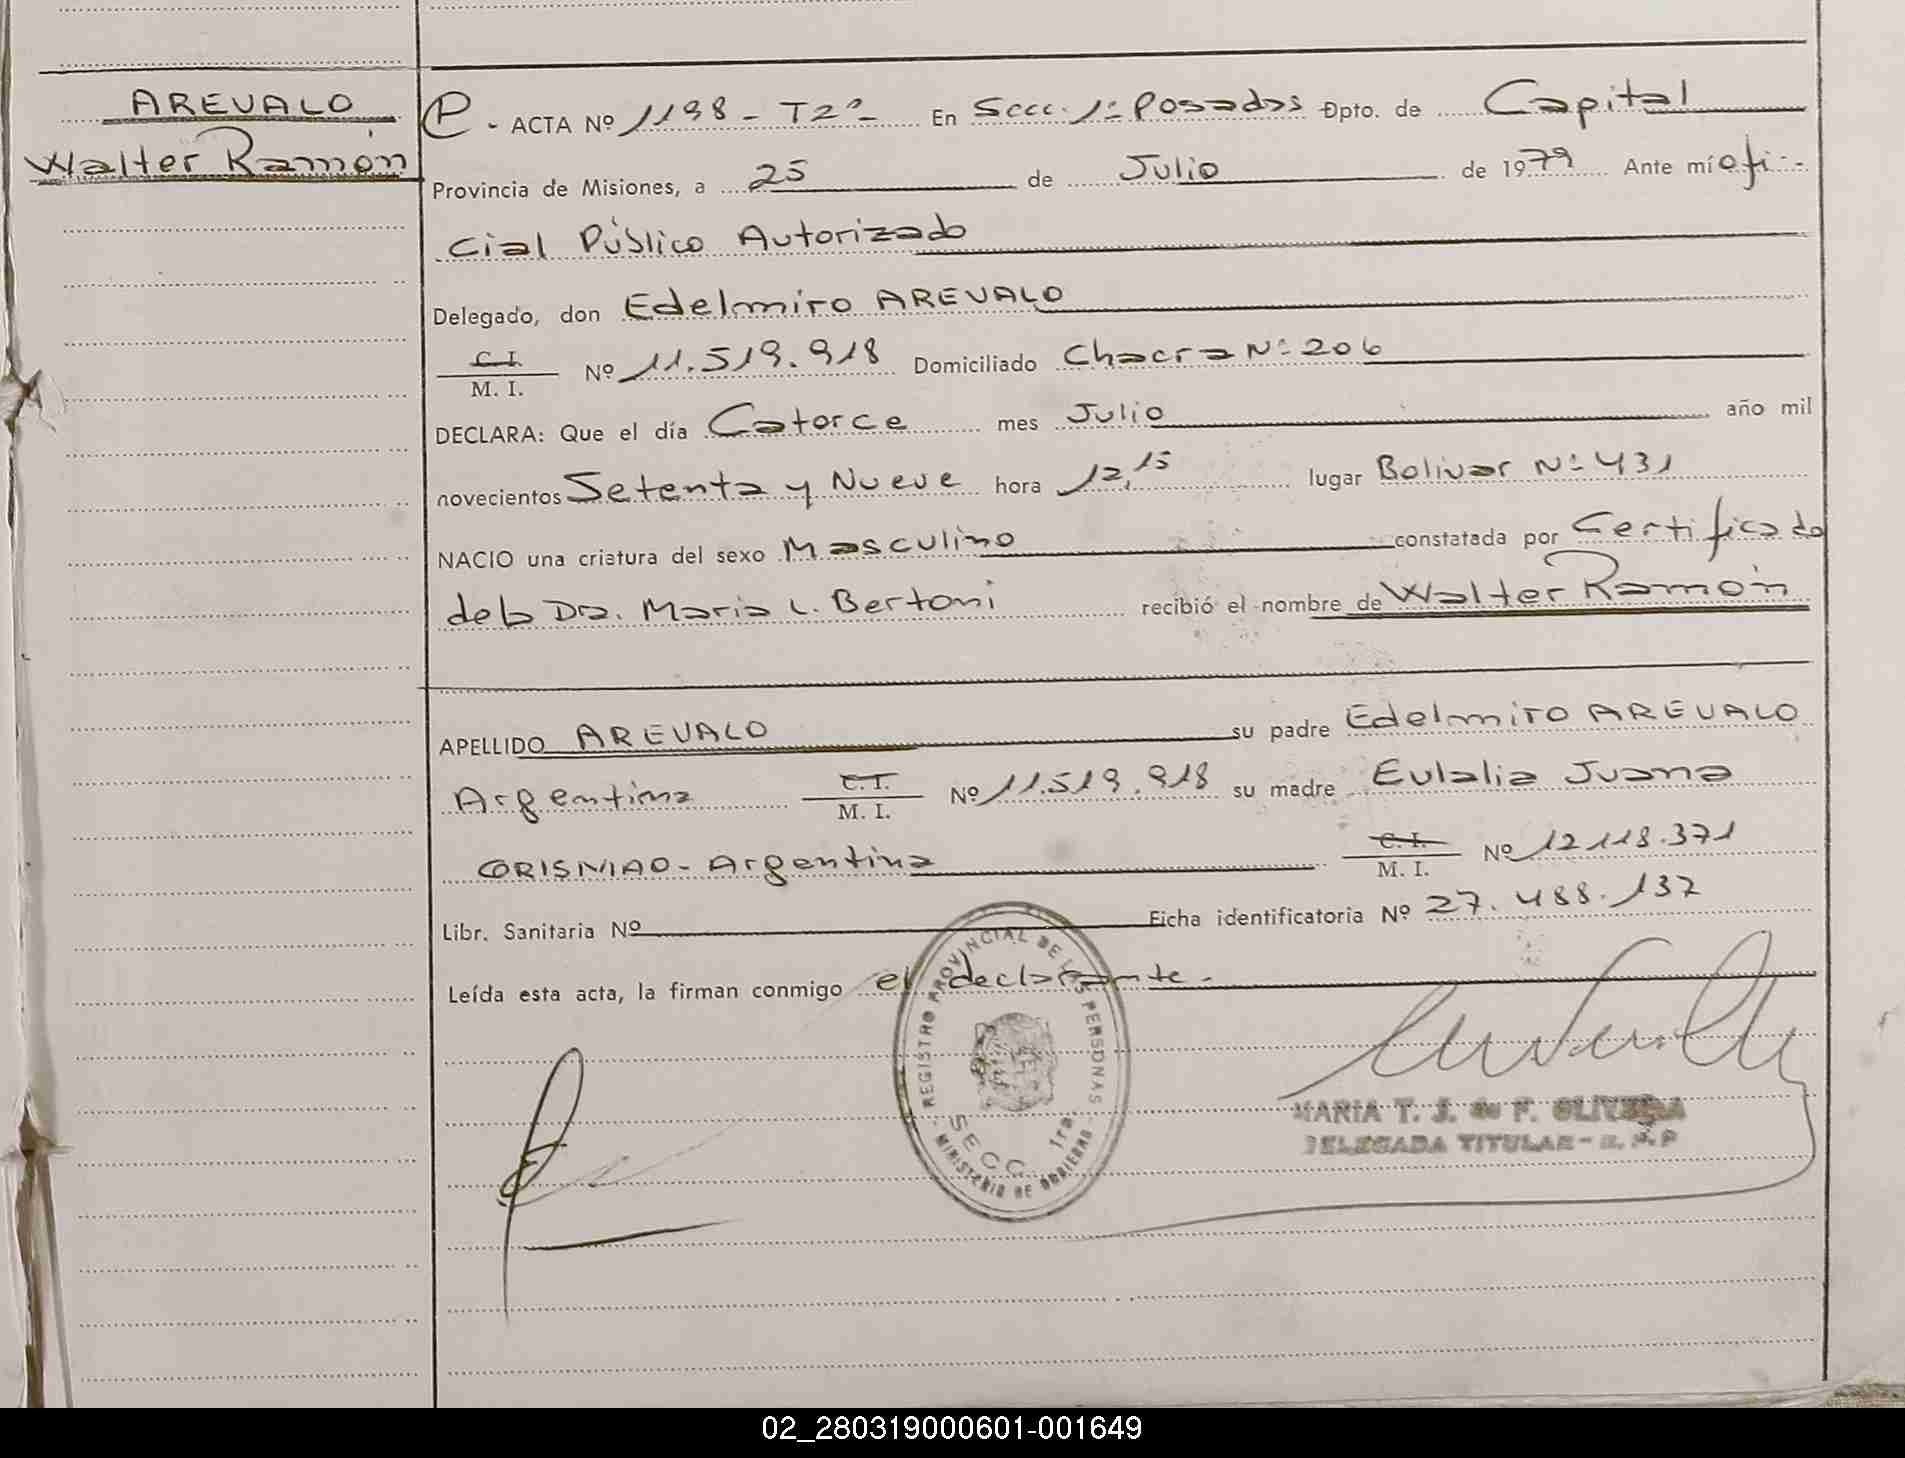 AREVALO
Walter Ramón
P - ACTA Nº 1198 - T2º - En Secc. 1ª Posadas Dpto. de Capital
Provincia de Misiones, a 25 de Julio de 1979 Ante mí ofi-
cial Público Autorizado
Delegado, don Edelmiro AREVALO
C.I.
M. I. Nº 11.519.918 Domiciliado Chacra Nº 206
DECLARA: Que el día Catorce mes Julio año mil
novecientos Setenta y Nueve hora 12,15 lugar Bolivar Nº 431
NACIO una criatura del sexo Masculino constatada por Certificado
de la Dra. Maria L. Bertoni recibió el nombre de Walter Ramón
APELLIDO AREVALO su padre Edelmiro AREVALO
Argentina C.I. M. I. Nº 11.519.918 su madre Eulalia Juana
- Argentina C.I. M. I. Nº 12118.371
Libr. Sanitaria Nº Ficha identificatoria Nº 27.488.137
Leída esta acta, la firman conmigo el declarante.-
REGISTRO PROVINCIAL DE LAS PERSONAS
SECC. 1ra.
MINISTERIO DE GOBIERNO
MARIA T. J. de F. OLIVERA
DELEGADA TITULAR - R. P. P
02_280319000601-001649